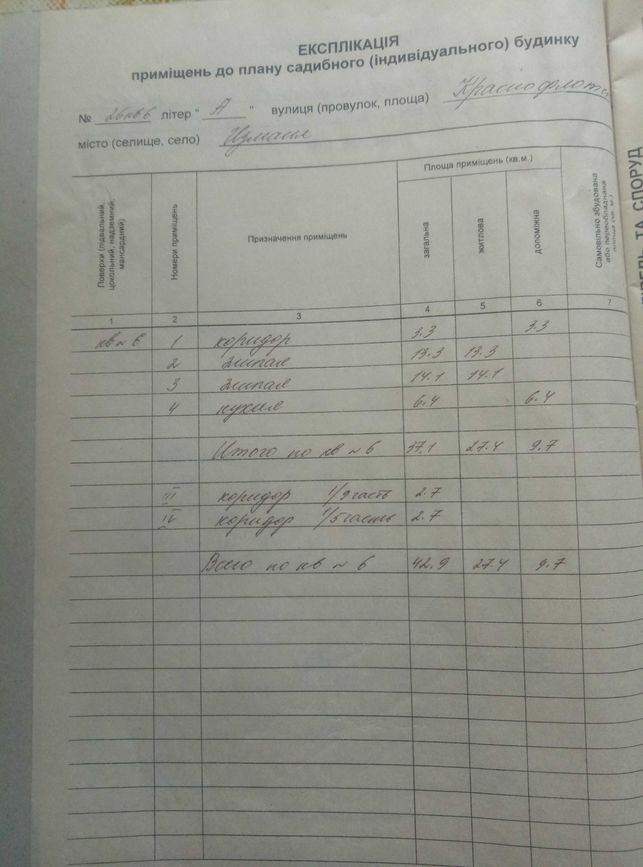 ЕКСПЛІКАЦІЯ
приміщень до плану садибного (індивідуального) будинку
№ літер " А " вулиця (провулок, площа) Краснофлотс
місто (селище, село) Измаил
Поверхи (підвальний, цокольний, надземний, мансардний)
Номери приміщень
Призначення приміщень
Площа приміщень (кв.м.)
загальна
житлова
допоміжна
Самовільно збудована або переобладнана площа (кв. м.)
1 2 3 4 5 6 7
кв № 6 1 коридор 3.3 3.3
2 жилая 13.3 13.3
3 жилая 14.1 14.1
4 кухня 6.4 6.4
Итого по кв № 6 37.1 27.4 9.7
III коридор 1/9 часть 2.7
IV коридор 1/5 часть 2.7
Всего по кв № 6 42.9 27.4 9.7
ТА СПОРУД